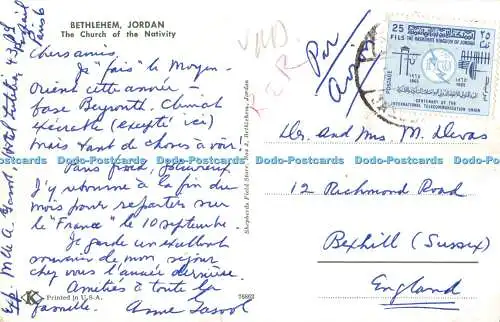 BETHLEHEM, JORDAN
The Church of the Nativity
Chers amis,
Je "fais" le Moyen-
Orient cette année -
base Beyrouth. Climat
exécrable (excepté ici)
mais tant de choses à voir.
Paris froid, pluvieux
J'y retourne à la fin du
mois pour repartir sur
le "France" le 10 septembre.
Je garde un excellent
souvenir de mon séjour
chez vous l'année dernière.
Amitiés à toute la
famille. Anne
Exp. Mlle A.
Paris 6
K Printed in U.S.A.
76862
Shepherds Field Store, Box 2, Bethlehem, Jordan
Par
Avion
25
FILS
THE HASHEMITE KINGDOM OF JORDAN
POSTAGE
CENTENARY OF THE
INTERNATIONAL TELECOMMUNICATION UNION
Dr. and Mrs. M. Devas
12 Richmond Road
Bexhill (Sussex)
England
Dodo-Postcards Dodo-Postcards Dodo-Postcards Dodo-Postcards